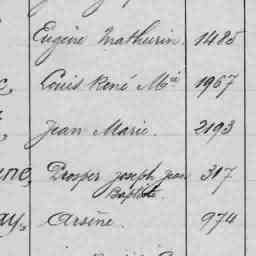 Eugène Mathurin. 1485
Louis René Mie 1967
Jean Marie. 2193
Prosper joseph jean 317
Baptiste
Arsène. 974